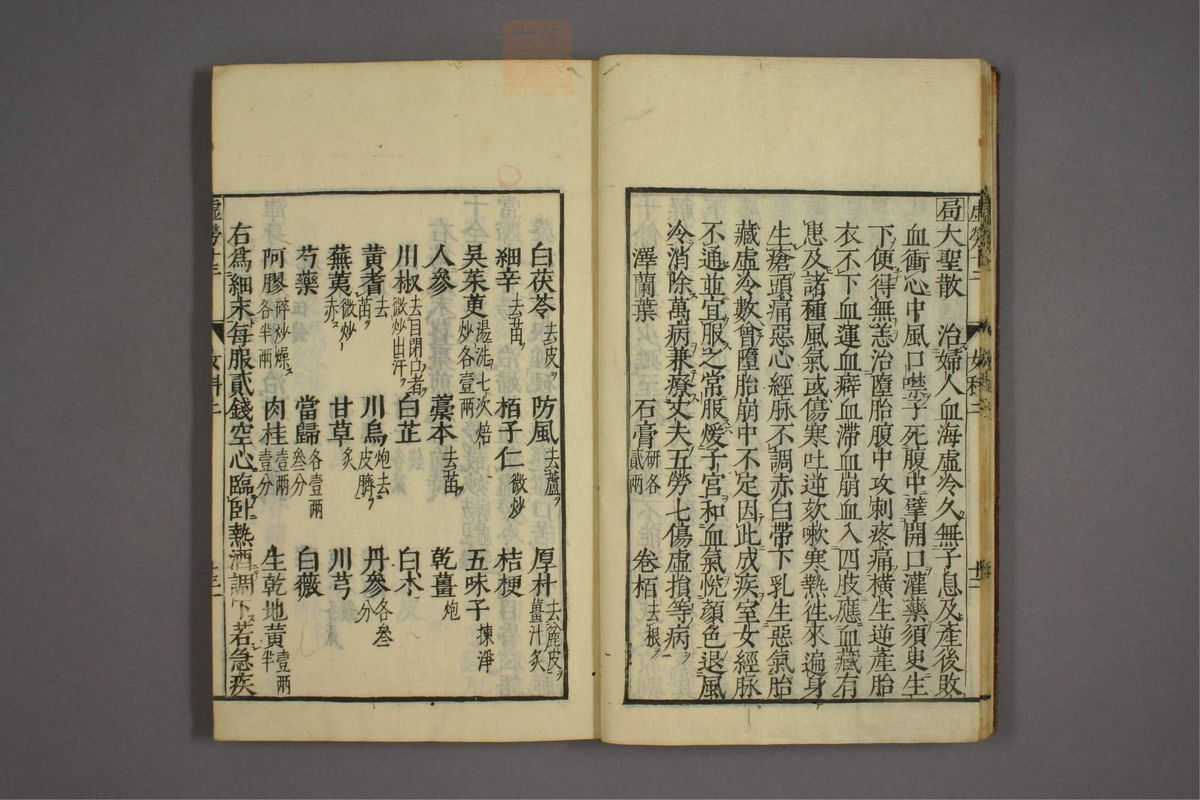 局大聖散 治婦人血海虛冷久無子息及產後敗
血衝心中風口噤子死腹中擘開口灌藥須臾生
下便得無恙治墮胎腹中攻刺疼痛橫生逆產胎
衣不下血運血癖血滯血崩血入四肢應血藏有
患及諸種風氣或傷寒吐逆欬嗽寒熱往來遍身
生瘡頭痛惡心經脉不調赤白帶下乳生惡氣胎
藏虛冷數曾墮胎崩中不定因此成疾室女經脉
不通並宜服之常服煖子宮和血氣悅顏色退風
冷消除萬病兼療丈夫五勞七傷虛損等病
澤蘭葉 石膏研各貳兩 卷栢去根
白茯苓去皮 防風去蘆 厚朴去麄皮薑汁炙
細辛去苗 栢子仁微炒 桔梗
吳茱萸湯洗七次焙炒各壹兩 五味子揀淨
人參 藁本去苗 乾薑炮
川椒去目閉口者微炒出汗 白芷 白朮
黃耆去苗 川烏炮去皮臍 丹參各叁分
蕪荑微炒赤 甘草炙 川芎
芍藥 當歸各壹兩叁分 白薇
阿膠碎炒燥各半兩 肉桂壹兩壹分 生乾地黃壹兩半
右爲細末每服貳錢空心臨臥熱酒調下若急疾